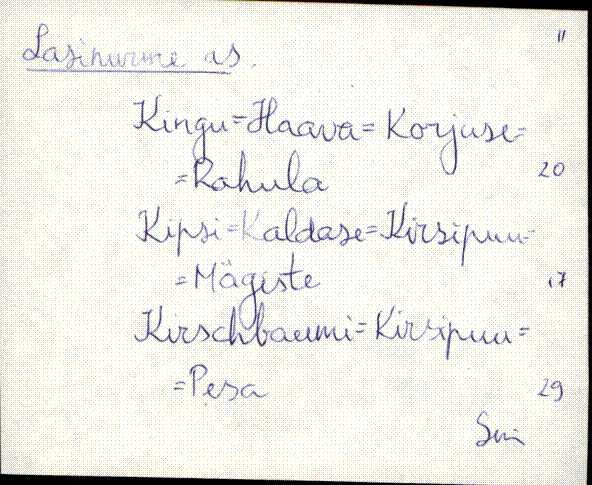 11
Lasinurme as.
Kingu=Haava=Korjuse=
=Rahula
20
Kipsi=Kaldase=Kirsipuu=
=Mägiste
17
Kirschbaumi=Kirsipuu=
=Pesa
29